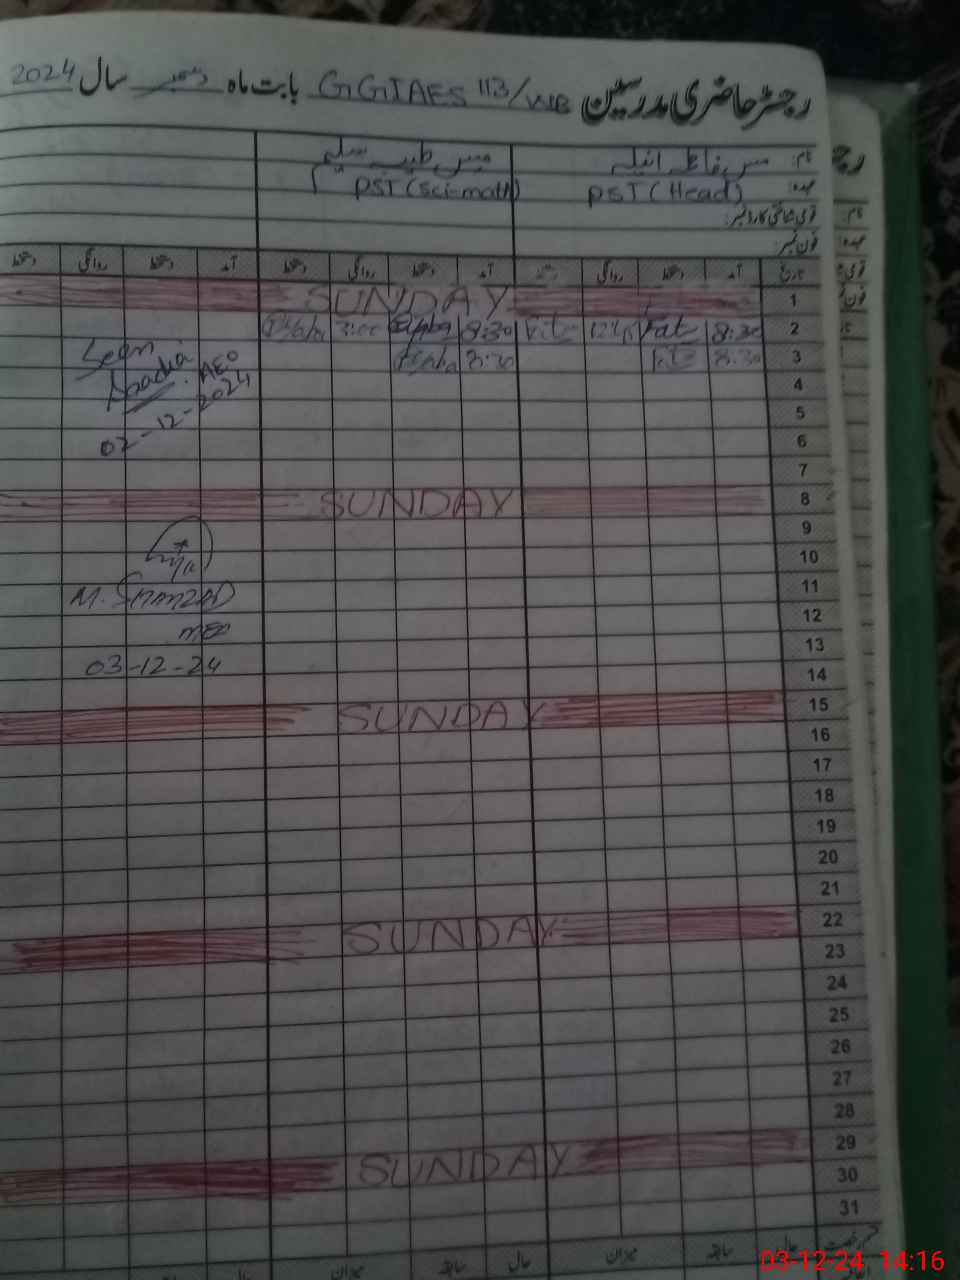 رجسٹر حاضری مدرسین GGIAES 113/WB بابت ماہ دسمبر سال 2024
نام: مس فاطمہ انیلہ مس طیبہ سلیم
عہدہ: PST (Head) PST (Sci-math)
قومی شناختی کارڈ نمبر:
فون نمبر:
تاریخ آمد دستخط روانگی دستخط آمد دستخط روانگی دستخط آمد دستخط روانگی دستخط
1 SUNDAY
2 8:30 Fat 8:30 3:00
3 8:30 8:30
Seen
AEO
02-12-2024
4
5
6
7
8 SUNDAY
9
10
11
M. SHAHZAD
12
MEO
13
03-12-24
14
15 SUNDAY
16
17
18
19
20
21
22 SUNDAY
23
24
25
26
27
28
29 SUNDAY
30
31
حال سابقہ میزان حال سابقہ میزان
03-12-24 14:16